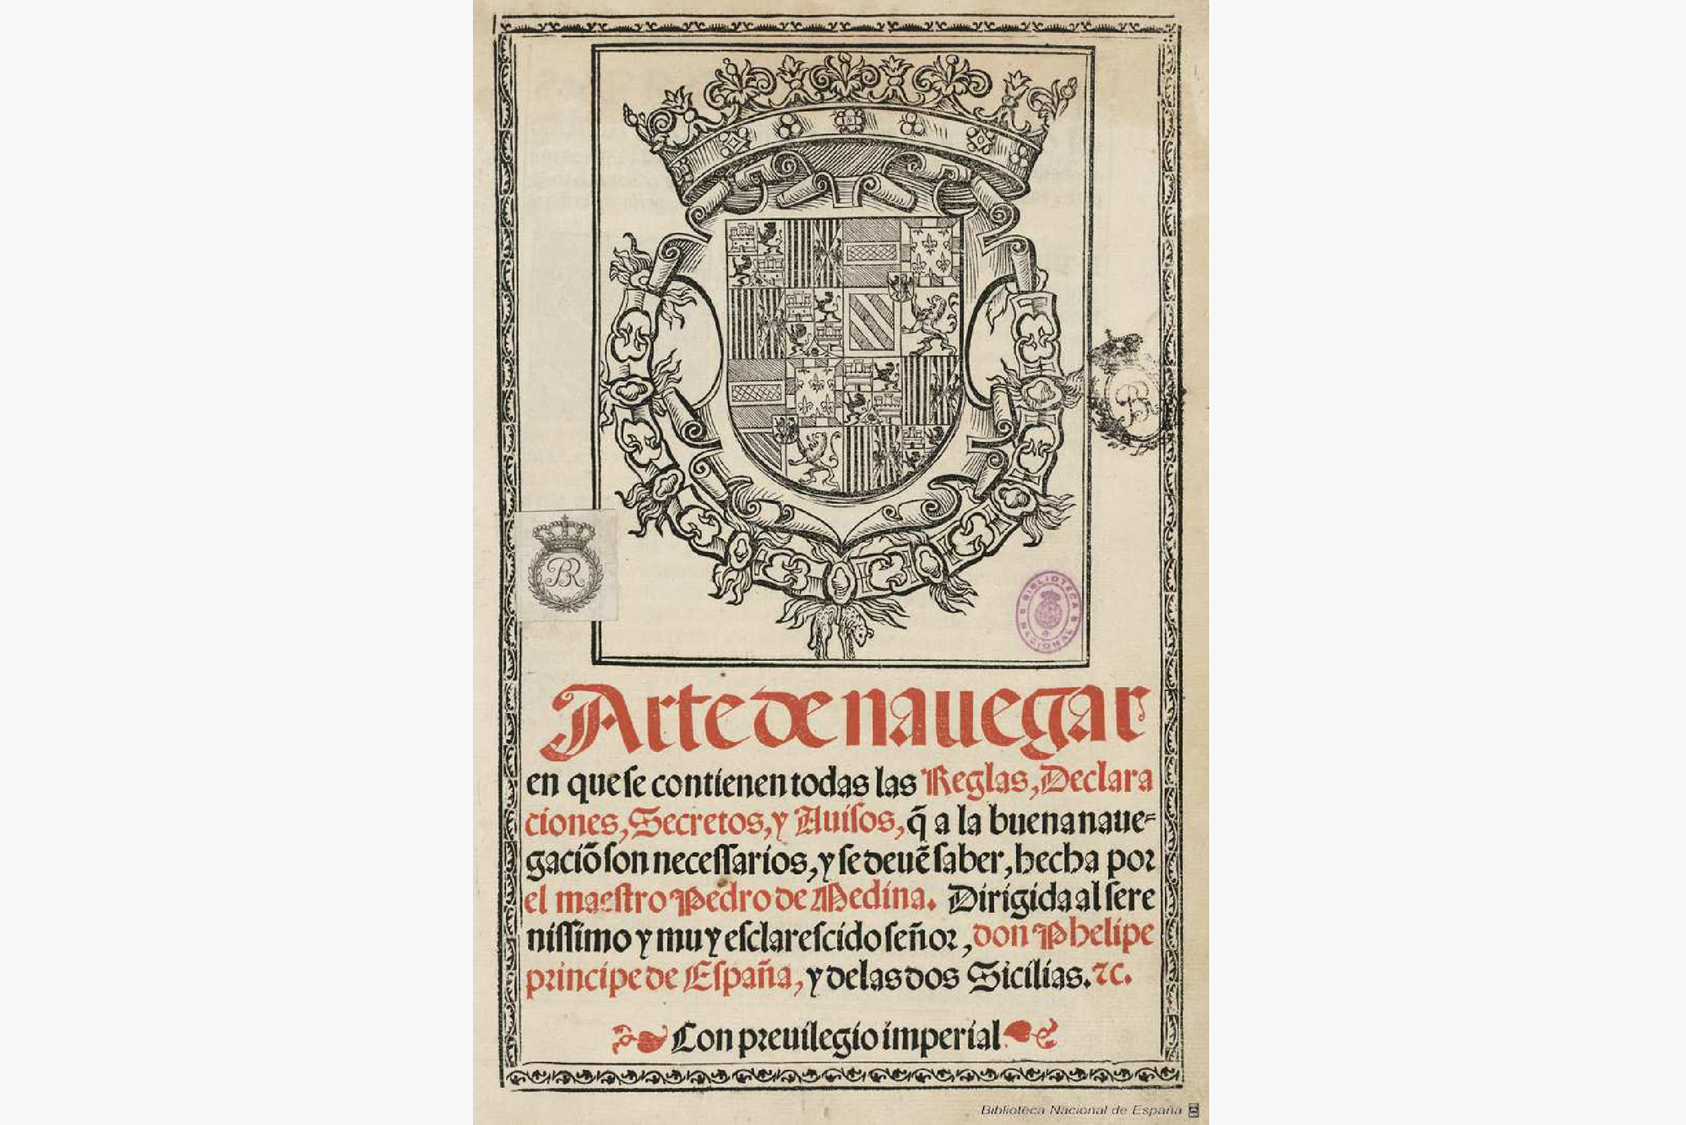 BR
BIBLIOTECA NACIONAL
Arte de nauegar
en que se contienen todas las Reglas, Declara
ciones, Secretos, y Auisos, q̃ a la buena naue-
gaciõ son necessarios, y se deuẽ saber, hecha por
el maestro Pedro de Medina. Dirigida al sere
nissimo y muy esclarescido señor, don Phelipe
principe de España, y de las dos Sicilias. ⁊c.
Con preuilegio imperial
Biblioteca Nacional de España